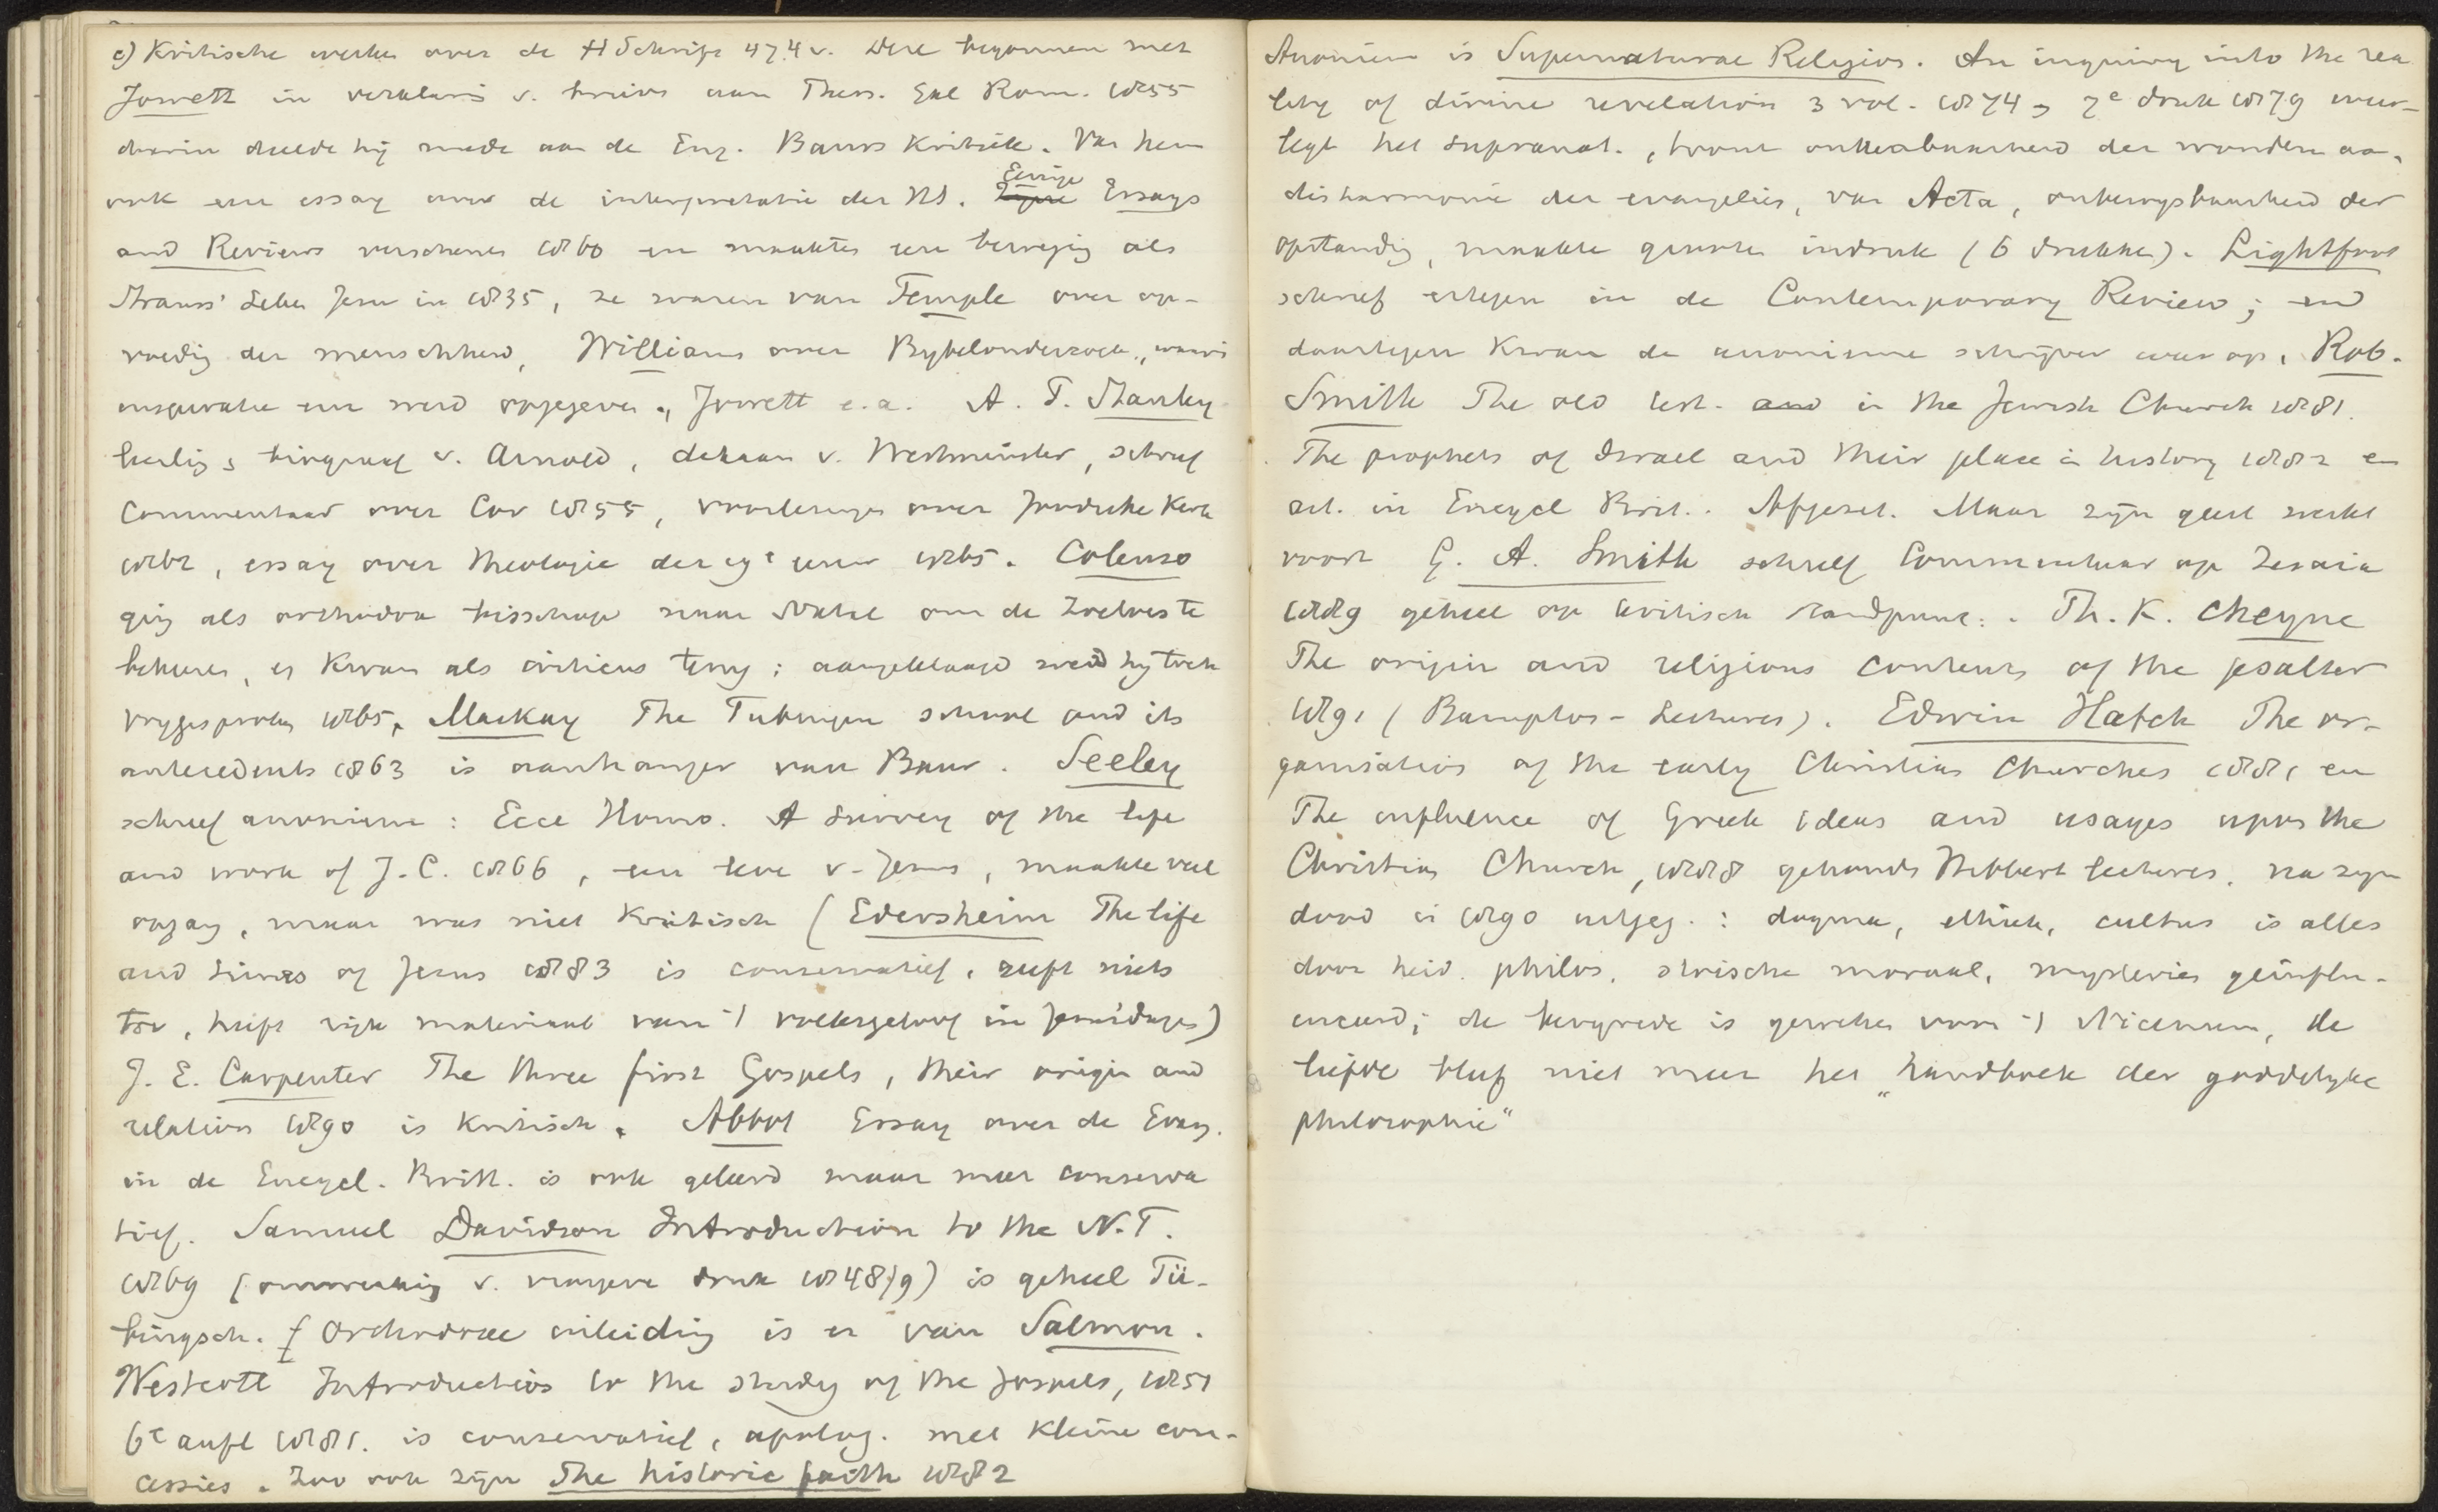 c) Kritische werken over de H Schrift 474 v. Deze begonnen met
Jowett in verklaring v. brieven aan Thess. Gal Rom. 1855
daarin deelde hij mede aan de Eng. Baurs Kritiek. Van hem
ook een essay over de interpretatie der HS. Eenige Essays
and Reviews verschenen 1860 en maakten een beweging als
Strauss' Leben Jesu in 1835, ze waren van Temple over op-
voeding der menschheid, Williams over Bybelonderzoek, waarin
inspiratie enz werd opgegeven, Jowett e.a. A. P. Stanley
leerling & biograaf v. Arnold, dekaan v. Westminster, schreef
Commentaar over Cor 1855, voorlezingen over Joodsche Kerk
1862, essay over theologie der 19e eeuw 1865. Colenso
ging als orthodox bisschop naar Natal om de Zoeloes te
bekeeren, er kwam als criticus terug; aangeklaagd werd hy toch
vrygesproken 1865. Mackay The Tubingen school and its
antecedents 1863 is aanhanger van Baur. Seeley
schreef anoniem: Ecce Homo. A Survey of the life
and work of J. C. 1866, een leven v. Jezus, maakte veel
opgang, maar was niet Kritisch (Edersheim The life
and times of Jesus 1883 is conservatief, geeft niets
toe, heeft rijk materiaal van 't volksgeloof in Jezus' dagen)
J. E. Carpenter The three first Gospels, their origin and
relation 1890 is Kritisch. Abbot Essay over de Evang.
in de Encycl. Britt. is ook geleerd maar meer conserva
tief. Samuel Davidson Introduction to the N.T.
1869 (omwerking v. vroegere druk 1848/9) is geheel Tü-
bingsch. [Orthodoxe inleiding is er van Salmon.
Westcott Introduction to the study of the Gospels, 1851
6e aufl 1881. is conservatief, apolog. met kleine con-
cessies. Zoo ook zijn The historic faith 1882
Anoniem is Supernatural Religion. An inquiry into the rea
lity of divine revelation 3 vol. 1874, 7e druk 1879 weer-
legt het supranat., toont onhoudbaarheid der wonderen aan,
disharmonie der evangeliën, van Acta, onbewysbaarheid der
opstanding, maakte grooten indruk (6 drukken). Lightfoot
schreef ertegen in de Contemporary Review; en
daartegen kwam de anonieme schrijver weer op. Rob.
Smith The old test. and in the Jewish Church 1881.
The prophets of Israel and their place in history 1882 en
art. in Encycl Brit. Afgezet. Maar zijn geest werkt
voort G. A. Smith schreef Commentaar op Jesaia
1889 geheel op kritisch standpunt. Th. K. Cheyne
The origin and religious contents of the psalter
1891 (Bampton-Lectures). Edwin Hatch The or-
ganisation of the early Christian Churches 1881 en
The influence of Greek ideas and usages upon the
Christian Church, 1888 gehouden Hibbert lectures, na zijn
dood in 1890 uitgeg.: dogma, ethiek, cultus is alles
door heid. philos., stoische moraal, mysteriën geïnflu-
enceerd; de bergrede is geweken voor 't Nicenum, de
liefde bleef niet meer het "handboek der goddelyke
philosophie"